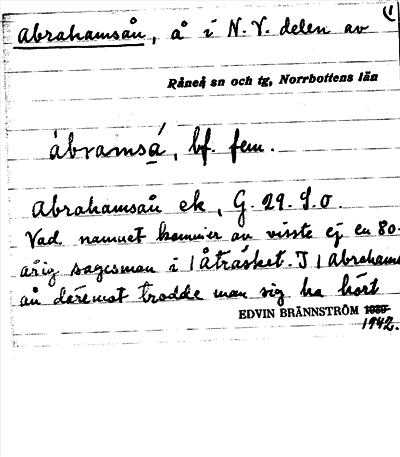 Abrahamsån, å i N.V. delen av
(1
Råneå sn och tg, Norrbottens län
ábramsá, bf. fem.
Abrahamsån ek, G. 29. S.O.
Vad namnet kommer av visste ej en 80-
årig sagesman i /Åträsket. I /Abrahams
ån däremot trodde man sig ha hört
EDVIN BRÄNNSTRÖM 1939
1942.